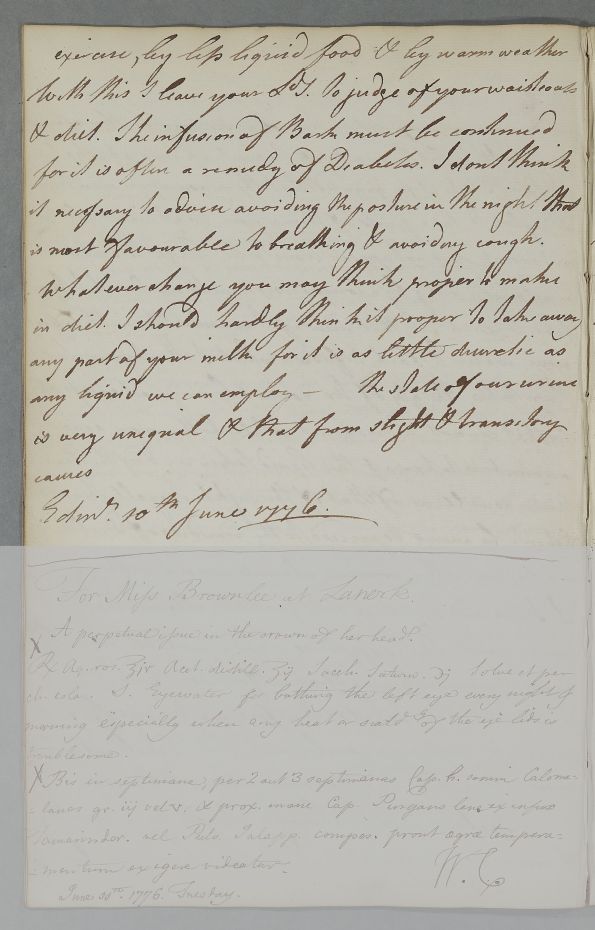 exercise, by less liquid food & by warm weather
With this I leave your Ldsp. to judge of your waistcoats
& diet. The infusion of Bark must be continued
for it is often a remedy of Diabetes. I dont think
it necessary to advise avoiding the posture in the night that
is most favourable to breathing & avoiding cough.
Whatever change you may think proper to make
in diet. I should hardly think it proper to take away
any part of your milk for it is as little diuretic as
any liquid we can employ — the state of your urine
is very unequal & that from slight & transitory
causes
Edinr. 10th June 1776.
For Miss Brownlee at Lanerk.
A perpetual issue in the crown of her head.
X
R Aq. ros. ℥iv Acet. distill. ʒij Sacch. Saturn. ℈j Solve et per
cola. S. Eyewater for bathing the left eye every night &
morning especially when any heat or of the eye lids is
troublesome.
X Bis in septimana, per 2 aut 3 septimanas Cap. h. somni Calome-
lanos gr. iij vel v. & prox. mane Cap. Purgans lene ex infus
Tamarindor. vel Pulv. Jalapp. compos. prout ægræ tempera-
mentum exigere videatur.
W. C
June 10th. 1776. Tuesday.